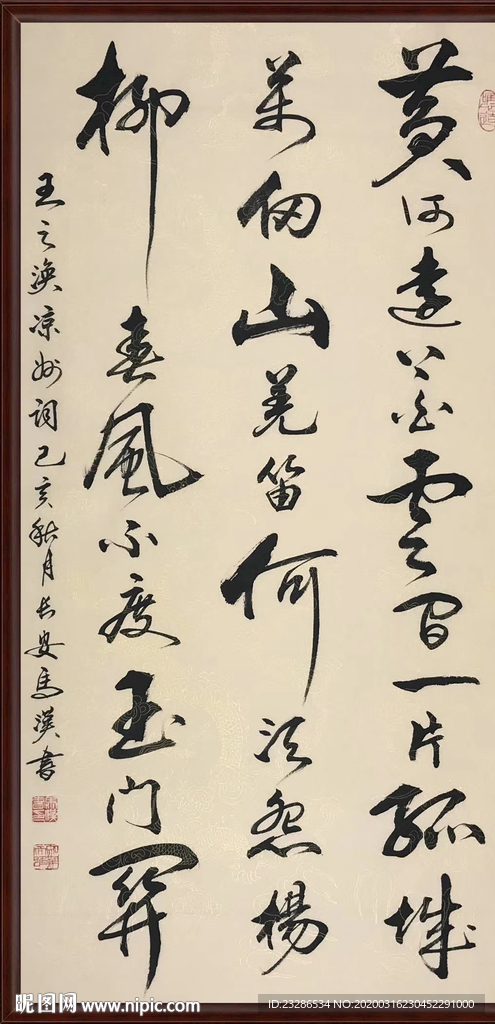 黄河遠上白雲間一片孤城
萬仞山羌笛何須怨楊
柳春風不度玉門關
王之渙凉州詞己亥秋月長安馬漢書
昵图网 www.nipic.com
ID:23286534 NO:20200316230452291000